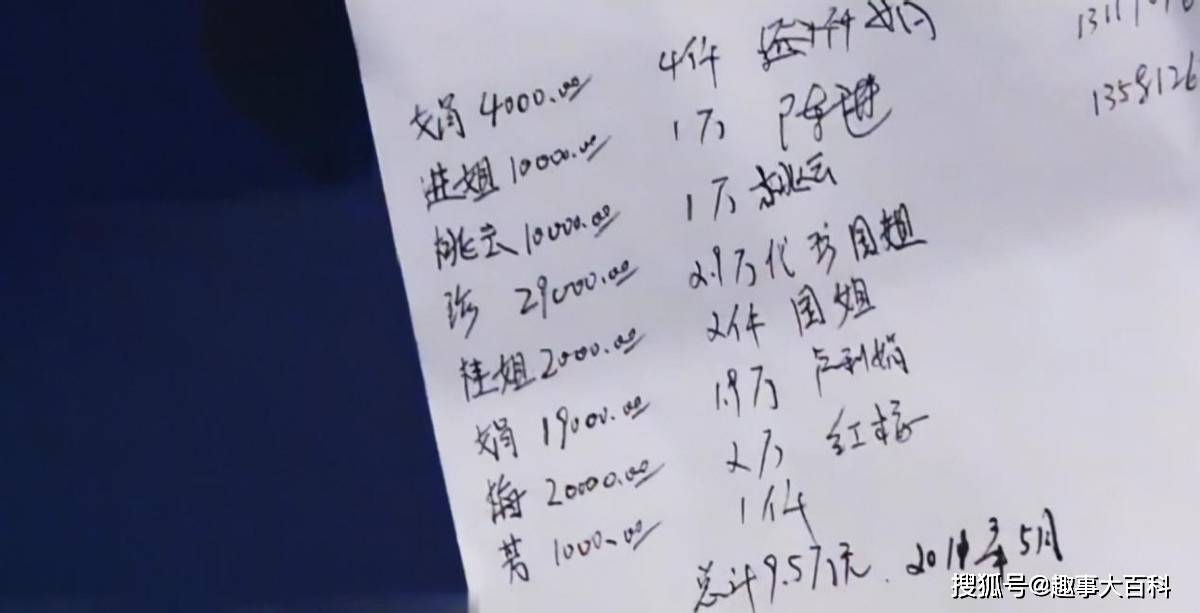 娟 4000.00 4件
进姐 10000.00 1万 陈 1358126
姚云 10000.00 1万 姚云
珍 29000.00 2.9万 代 国姐
桂姐 2000.00 2件 国姐
娟 19000.00 1.9万 卢利娟
梅 20000.00 2万 红梅
芳 1000.00 1件
总计9.5万元. 2011年5月
搜狐号@趣事大百科